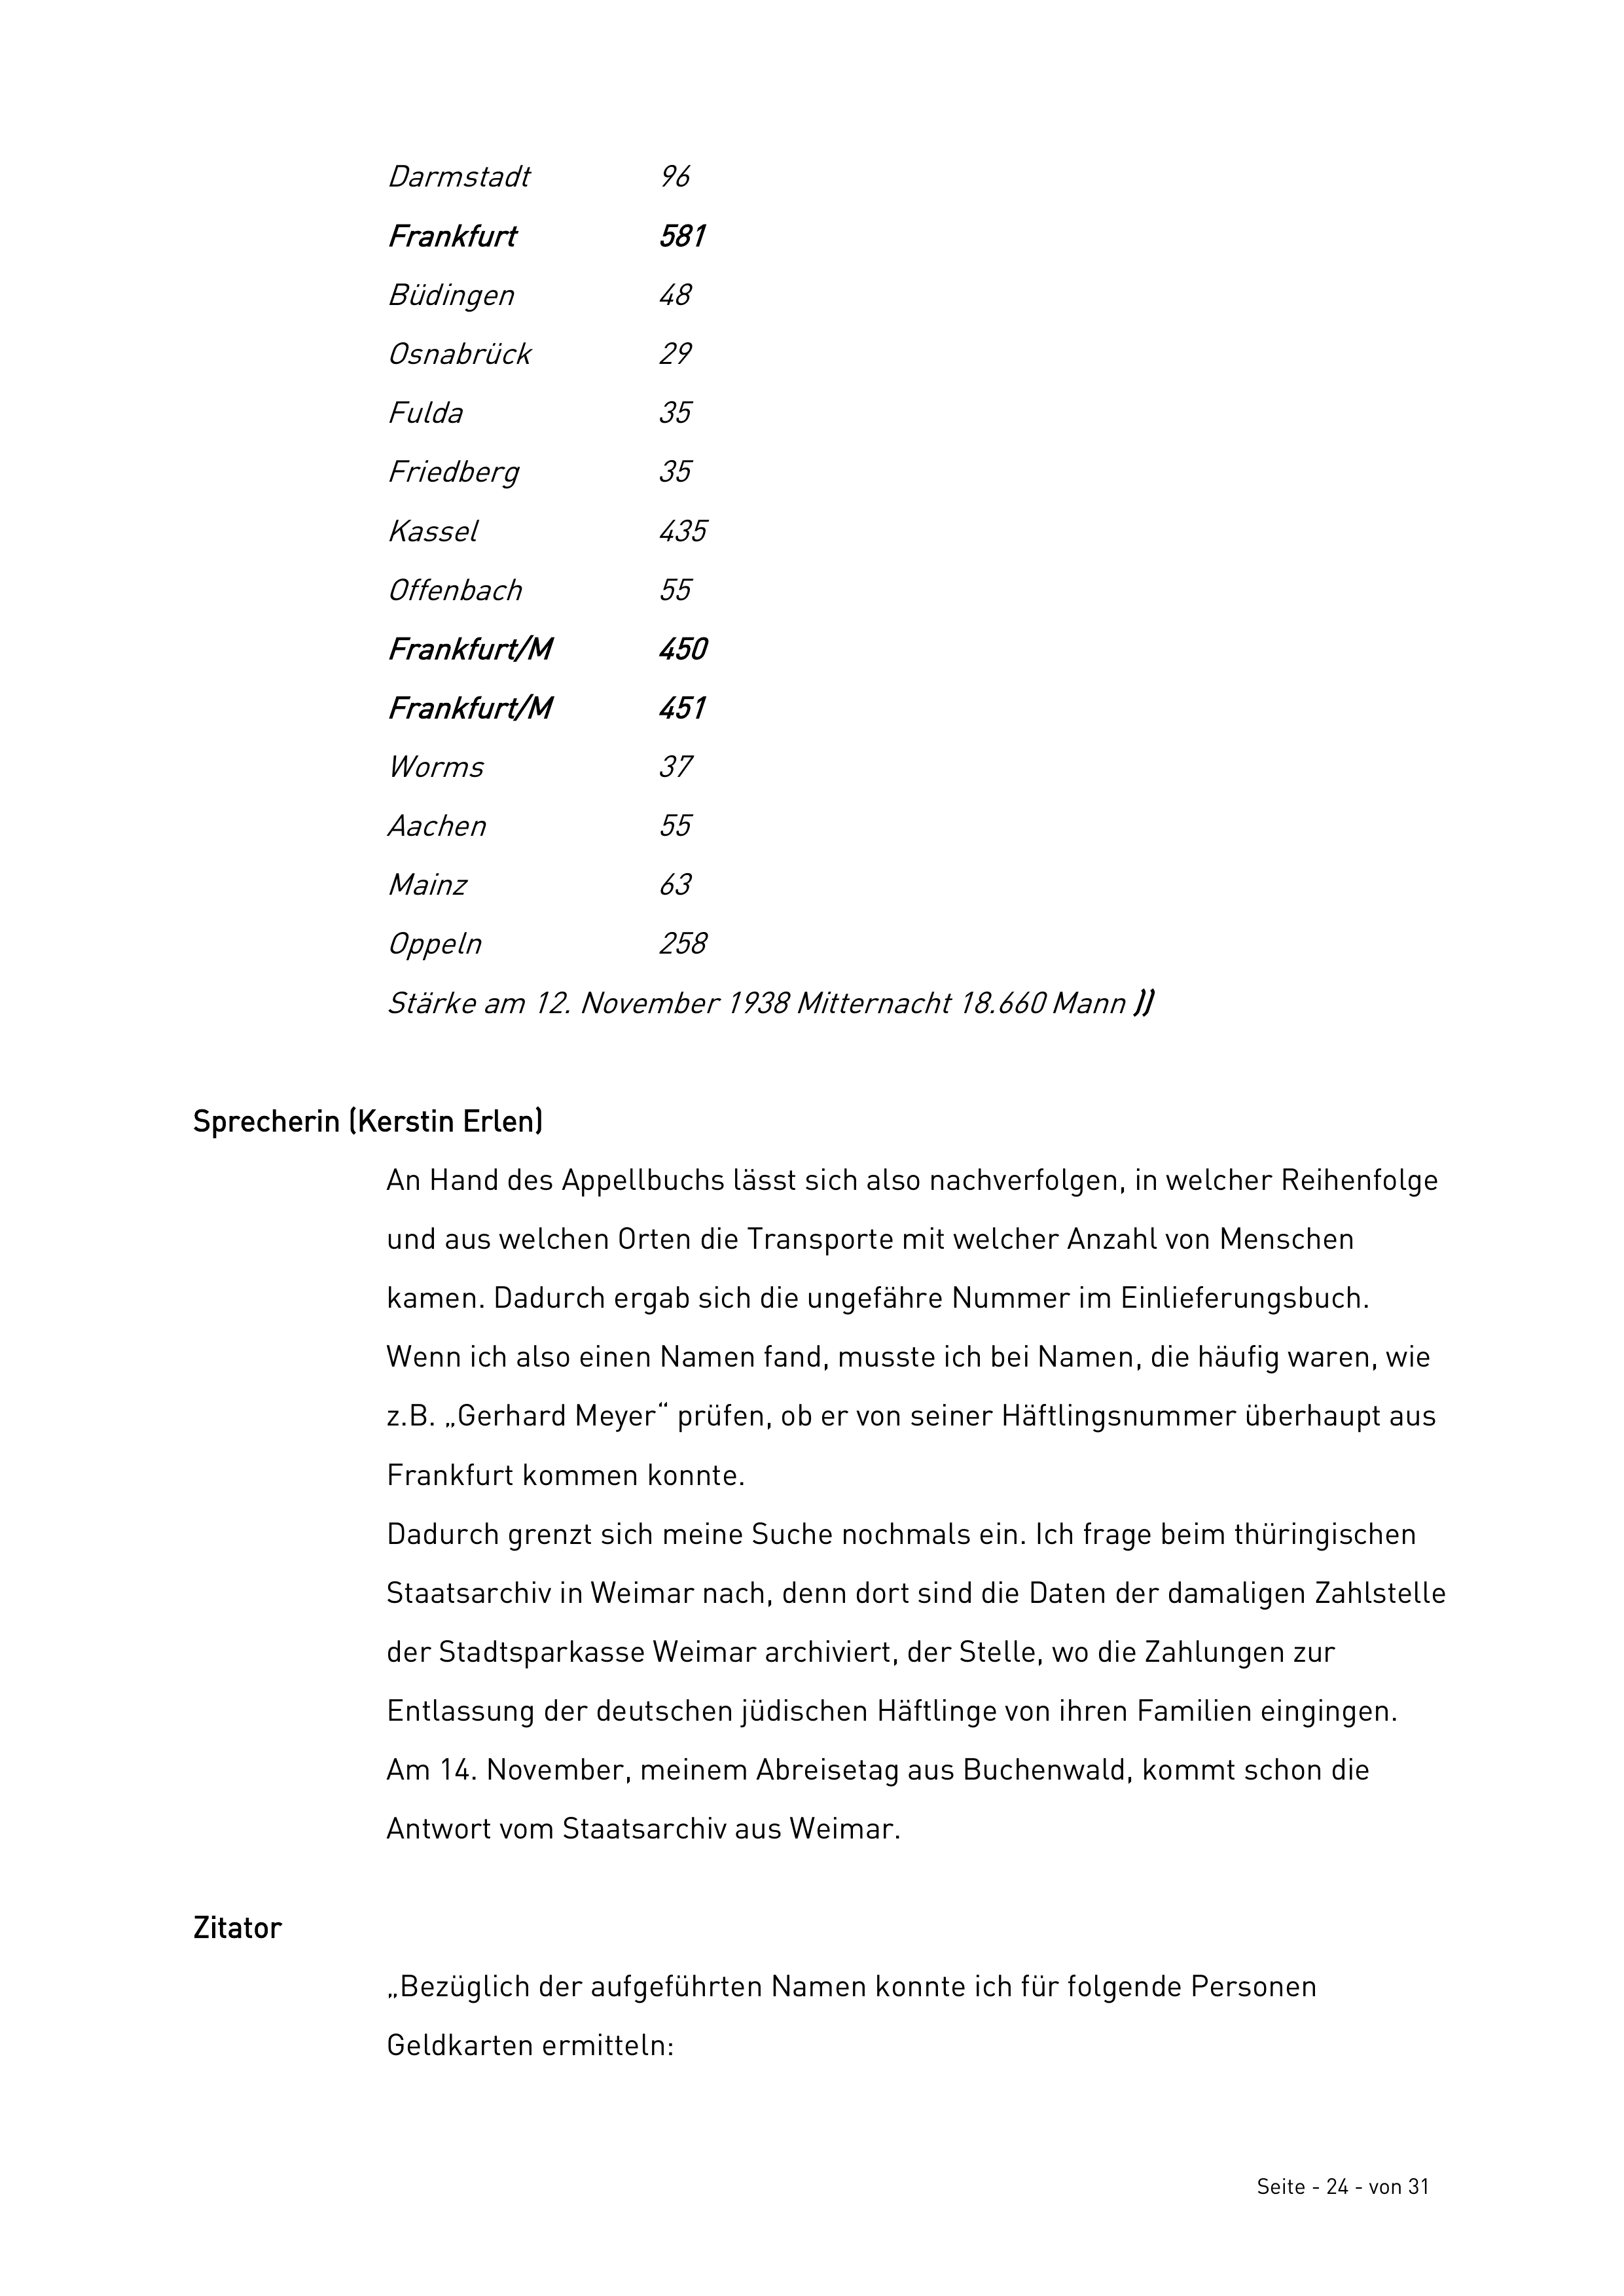 Darmstadt 96
Frankfurt 581
Büdingen 48
Osnabrück 29
Fulda 35
Friedberg 35
Kassel 435
Offenbach 55
Frankfurt/M 450
Frankfurt/M 451
Worms 37
Aachen 55
Mainz 63
Oppeln 258
Stärke am 12. November 1938 Mitternacht 18.660 Mann ))
Sprecherin (Kerstin Erlen)
An Hand des Appellbuchs lässt sich also nachverfolgen, in welcher Reihenfolge
und aus welchen Orten die Transporte mit welcher Anzahl von Menschen
kamen. Dadurch ergab sich die ungefähre Nummer im Einlieferungsbuch.
Wenn ich also einen Namen fand, musste ich bei Namen, die häufig waren, wie
z.B. „Gerhard Meyer“ prüfen, ob er von seiner Häftlingsnummer überhaupt aus
Frankfurt kommen konnte.
Dadurch grenzt sich meine Suche nochmals ein. Ich frage beim thüringischen
Staatsarchiv in Weimar nach, denn dort sind die Daten der damaligen Zahlstelle
der Stadtsparkasse Weimar archiviert, der Stelle, wo die Zahlungen zur
Entlassung der deutschen jüdischen Häftlinge von ihren Familien eingingen.
Am 14. November, meinem Abreisetag aus Buchenwald, kommt schon die
Antwort vom Staatsarchiv aus Weimar.
Zitator
„Bezüglich der aufgeführten Namen konnte ich für folgende Personen
Geldkarten ermitteln:
Seite - 24 - von 31